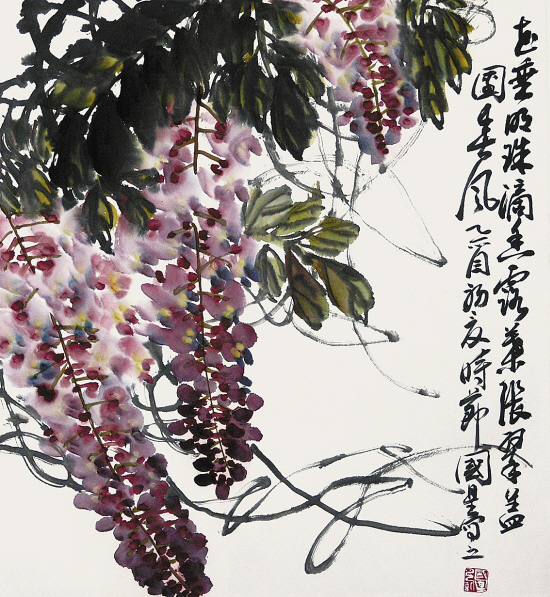 花垂明珠滴香露葉張翠蓋
園春風乙酉初夏時節國墨寫之